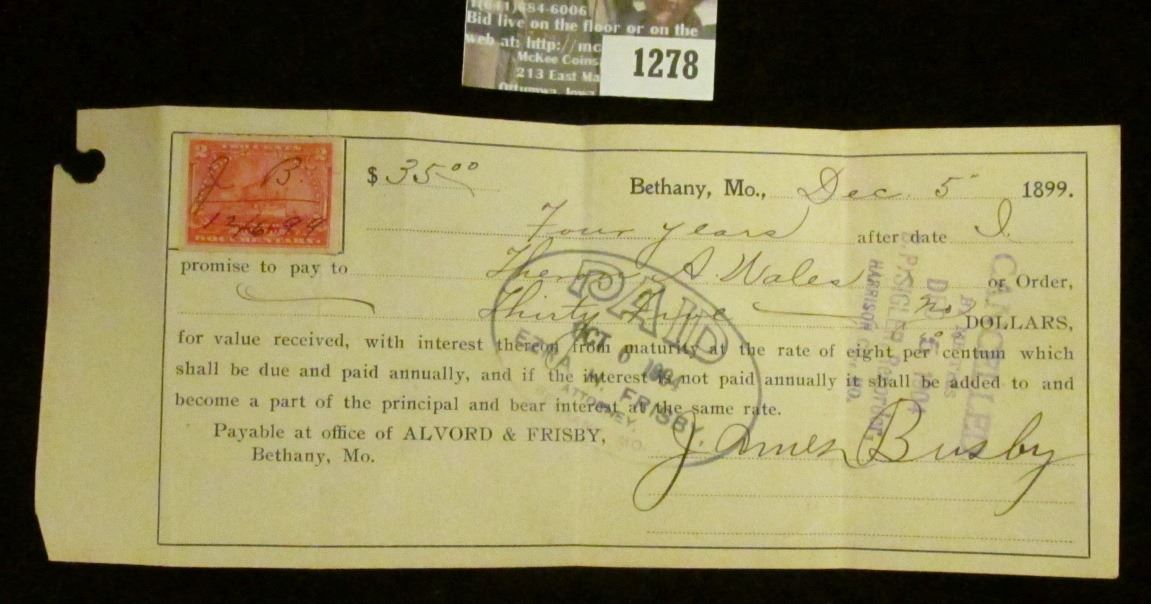 (641)684-6006
Bid live on the floor or on the
web at: http://mc
McKee Coins
213 East Ma
Ottumwa, Iowa
1278
2 TWO CENTS 2
J. B.
12/5-99
DOCUMENTARY
$ 35.00
Bethany, Mo., Dec. 5 1899.
Four years after date I
promise to pay to A. Wales or Order,
Thirty Five no DOLLARS,
for value received, with interest thereon from maturity at the rate of eight per centum which
shall be due and paid annually, and if the interest is not paid annually it shall be added to and
become a part of the principal and bear interest at the same rate.
Payable at office of ALVORD & FRISBY,
Bethany, Mo.
James Busby
PAID
OCT 1904
EZRA H. FRISBY.
ATTORNEY.
MO.
CANCELLED
DEC 1904
HARRISON CO. MO.